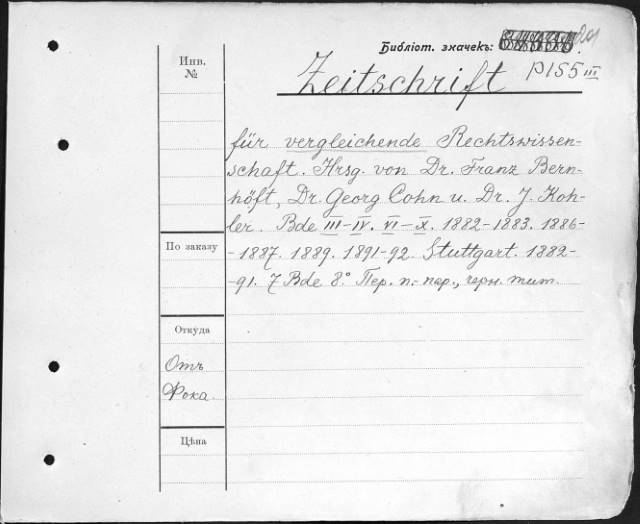 Библіот. значекъ:
Инв.
№
Zeitschrift PIS5 III
für vergleichende Rechtswissen-
schaft. Hrsg. von Dr. Franz Bern-
höft, Dr. Georg Cohn u. Dr. J. Koh-
ler. Bde III-IV. VI-X. 1882-1883. 1886-
-1887. 1889. 1891-92. Stuttgart. 1882-
-91. 7 Bde 8° Пер. п.-пер., черн. тит.
По заказу
Откуда
Отъ
Фока.
Цѣна